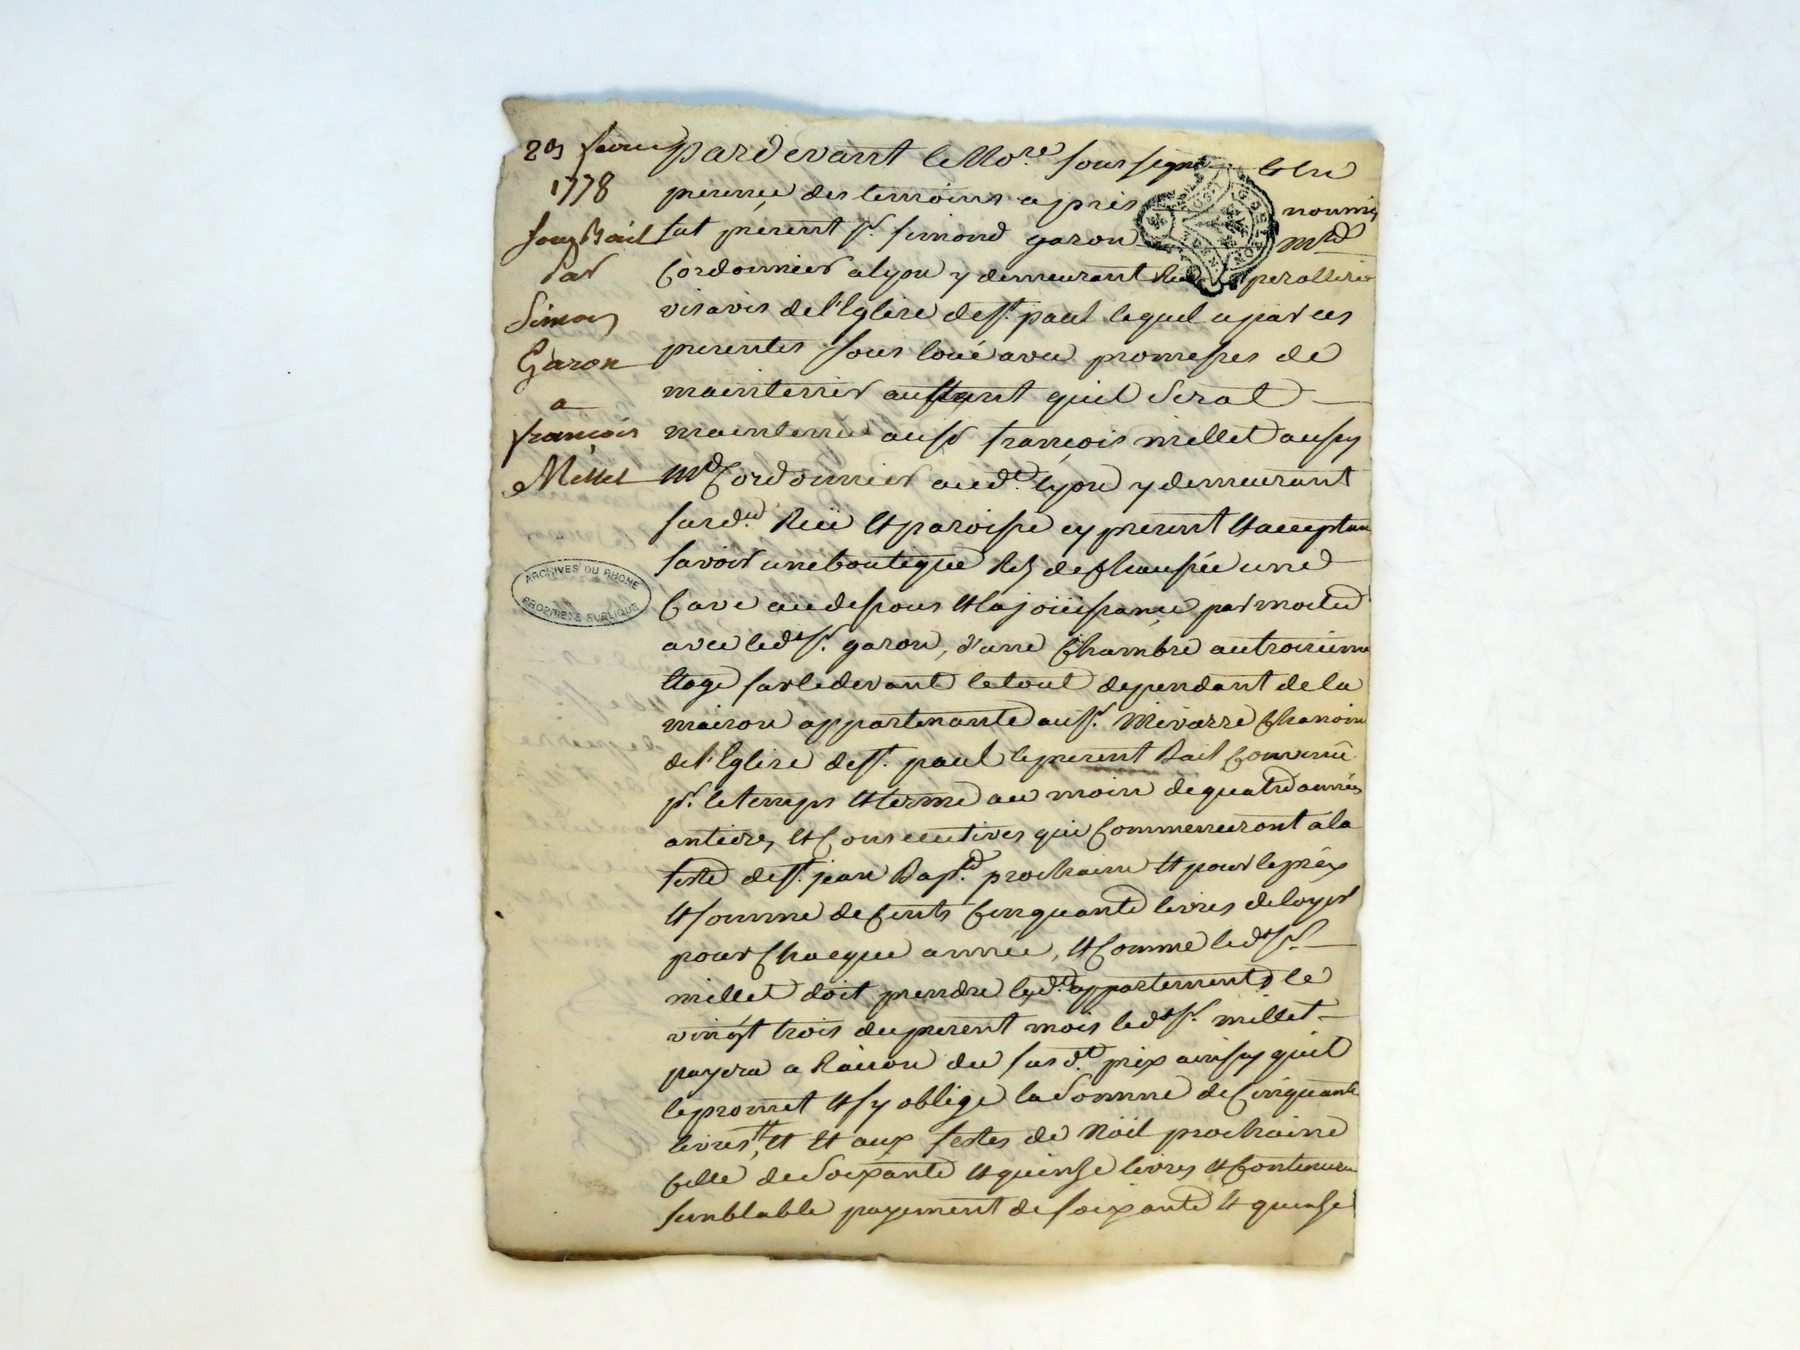 20 fevrier
1778
Sous Bail
Par
Simon
Garon
a
françois
Millet
ARCHIVES DU RHONE
PROPRIÉTÉ PUBLIQUE
pardevant le No.re soussigné et en
presence des temoins apres nommés
fut présent Sr. Simond garon Md
Cordonnier a lyon y demeurant Rue peollerie
vis avis de l'Eglise de St. paul lequel a par ces
presentes sous loué avec promesses de
maintenir austant quil Serat
maintenu au Sr françois millet aussy
Md Cordonnier audt. lyon y demeurant
susd. Rüe et paroisse cy present et acceptant
savoir une boutique Rez de chaussée une
Cave au dessous et la joüissance par moitié
avec ledt Sr. garon, d'une Chambre au troisieme
Etage sur le devant le tout dependant de la
maison appartenante au Sr. Chanoine
de l'Eglise de St. paul le present Bail Convenu
pr. le temps et terme au moin de quatre années
antieres et Consecutives qui Commenceront a la
feste de St. jean Bapt. prochaine et pour le prix
et somme de Cents Cinquante livres de loyer
pour Chaeque année, et Comme ledt Sr
millet doit prendre lesd. appartements le
vingt trois du present mois ledt Sr. millet
payera a Raison du susdt. prix ainsy quil
le promet et sy oblige la Somme de Cinquante
livres tt, et et aux festes de Noïl prochaine
Celle de Soixante et quinse livres et Continuera
semblable payement de soixante et quinse